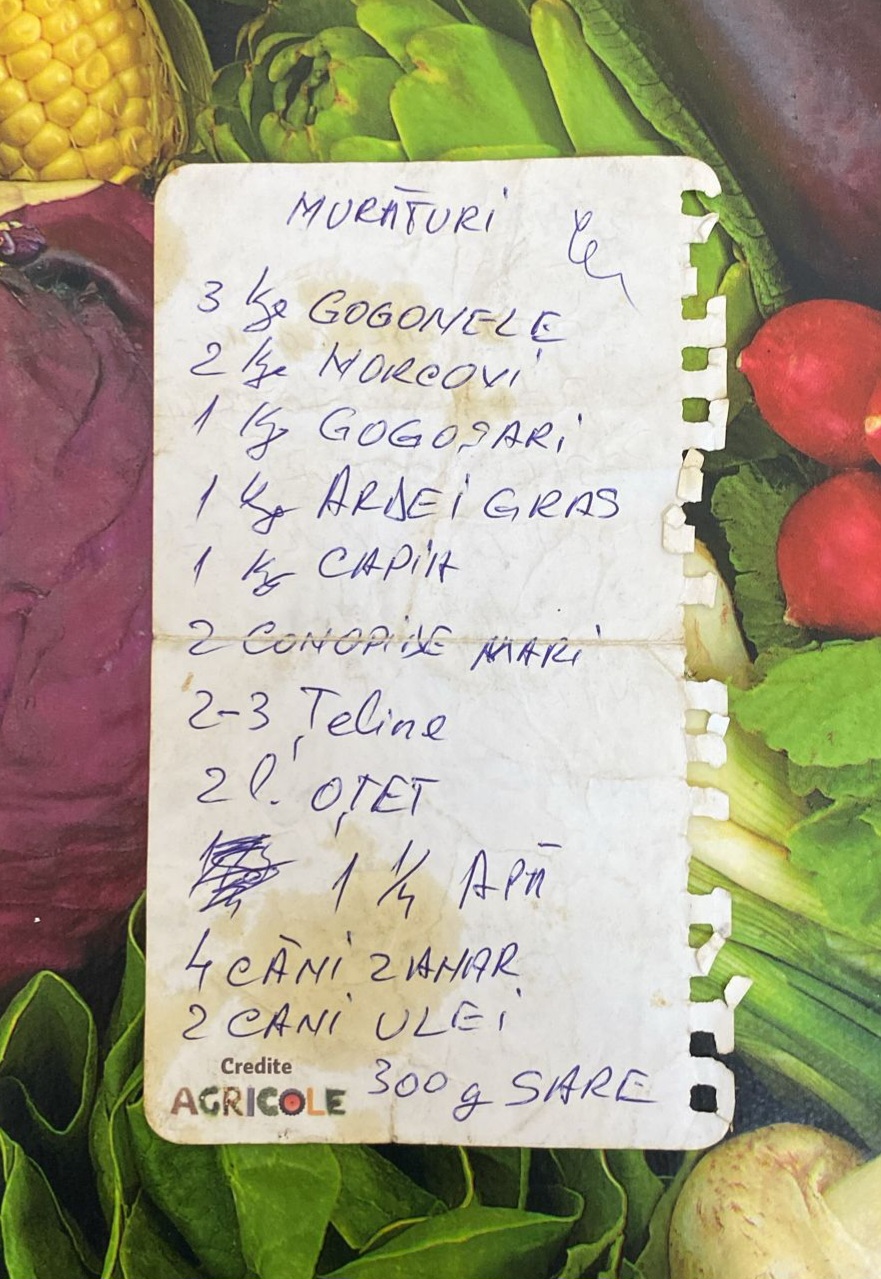 MURĂTURI
3 kg GOGONELE
2 kg MORCOVI
1 kg GOGOȘARI
1 kg ARDEI GRAS
1 kg CAPIA
2 CONOPIDE MARI
2-3 Țeline
2 l. OȚET
1 1/4 APĂ
4 CĂNI ZAHAR
2 CANI ULEI
300 g SARE
Credite
AGRICOLE